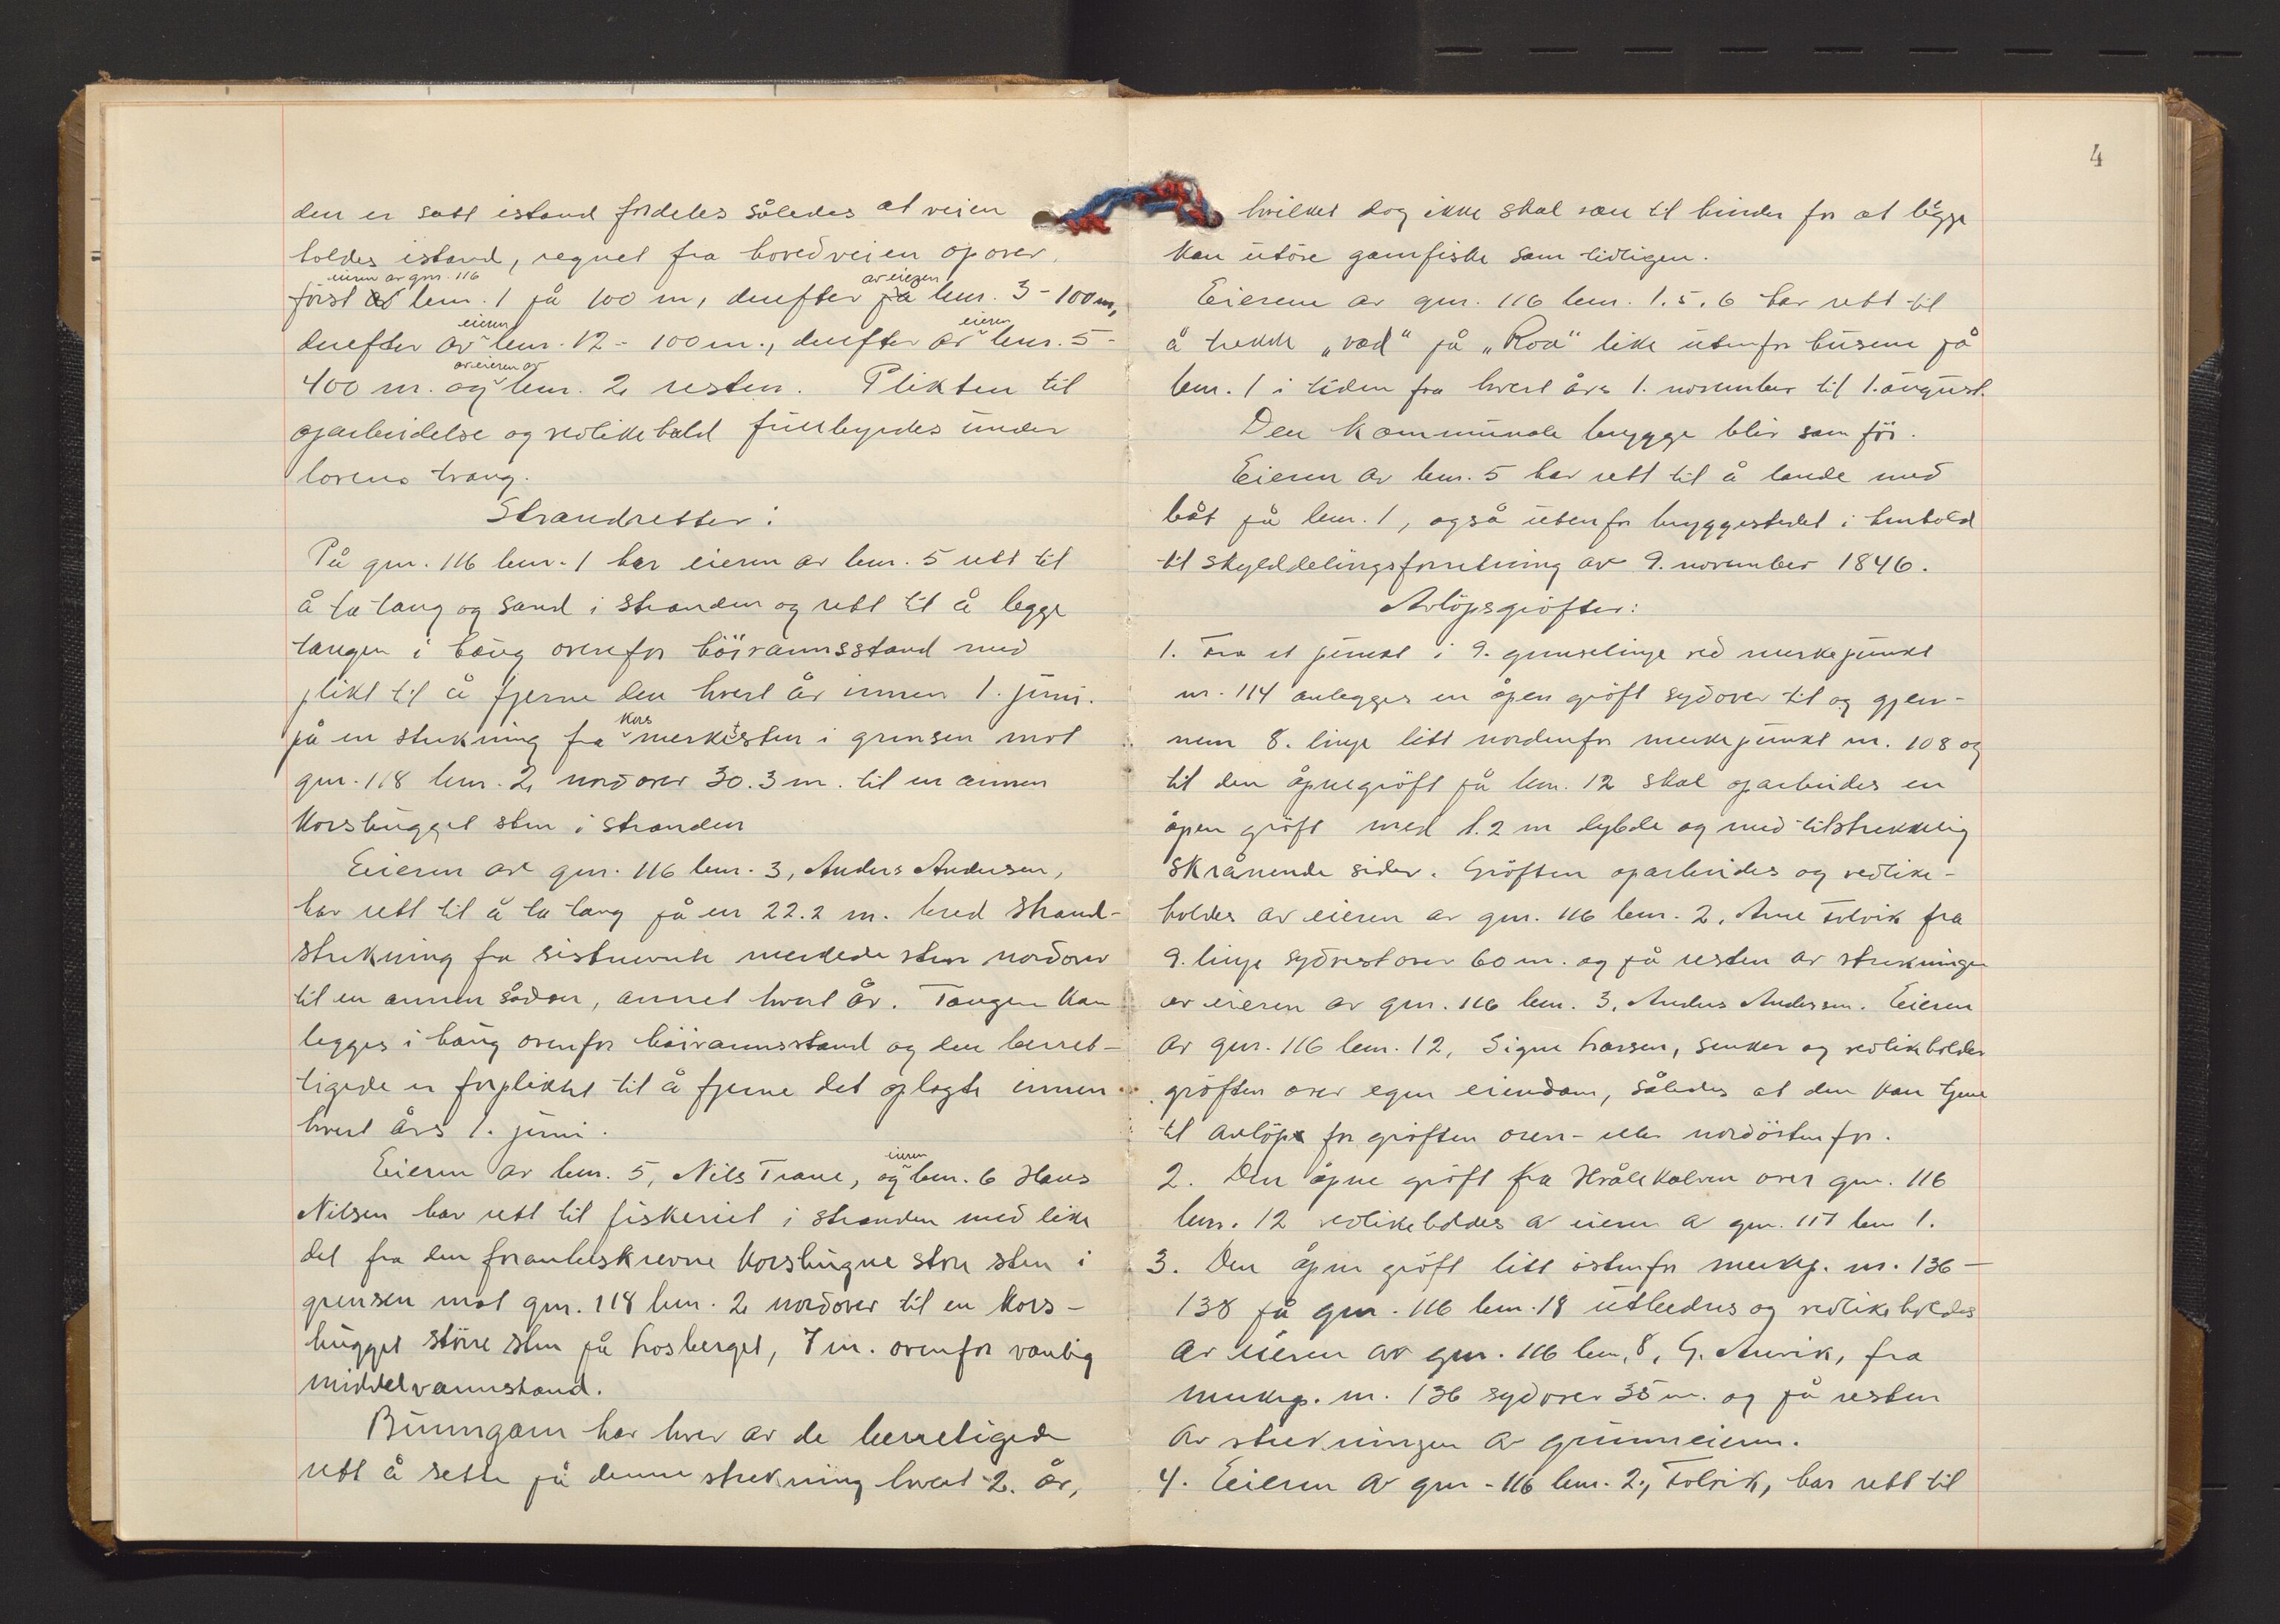 den er satt istand fordeles således at veien
holdes istand, regnet fra hovedveien opover,
eieren av gnr. 116
av eieren
først av bnr. 1 på 100 m, derefter på bnr. 3 - 100 m,
eieren
eieren
derefter av bnr. 12 - 100 m., derefter av bnr. 5 -
av eieren av
400 m. og bnr. 2 resten. Plikten til
oparbeidelse og vedlikehold fullbyrdes under
lovens tvang.
Strandretter:
På gnr. 116 bnr. 1 har eieren av bnr. 5 rett til
å ta tang og sand i stranden og rett til å legge
tangen i haug ovenfor höivannsstand med
plikt til å fjerne den hvert år innen 1. juni.
kors
på en strekning fra merketsten i grensen mot
gnr. 118 bnr. 2 nordover 30.3 m. til en annen
korshugget sten i stranden
Eieren av gnr. 116 bnr. 3, Anders Andersen,
har rett til å ta tang på en 22.2 m. bred strand-
strekning fra sistnevnte merkede sten nordover
til en annen sådan, annet hvert år. Tangen kan
legges i haug ovenfor höivannsstand og den berret-
tigede er forpliktet til å fjerne det oplagte innen
hvert års 1. juni.
eieren
Eieren av bnr. 5, Nils Trane, og bnr. 6 Hans
Nilsen har rett til fiskeriet i stranden med like
del fra den foranbeskrevne korshugne store sten i
grensen mot gnr. 118 bnr. 2 nordover til en kors-
hugget större sten på Losberget, 7 m. ovenfor vanlig
middelvannstand.
Bunngarn har hver av de berretigede
rett å sette på denne strekning hvert 2. år,
4
hvilket dog ikke skal være til hinder for at begge
kan utöve garnfiske som tidligen.
Eierene av gnr. 116 bnr. 1. 5. 6 har rett til
å trekke „vad“ på „Roa“ like utenfor husene på
bnr. 1 i tiden fra hvert års 1. november til 1. august.
Den kommunale brygge blir som för.
Eieren av bnr. 5 har rett til å lande med
båt på bnr. 1, også utenfor bryggestedet i henhold
til skylddelingsforretning av 9. november 1846.
Avlöpsgröfter:
1. Fra et punkt i 9. grenselinje ved merkepunkt
nr. 114 anlegges en åpen gröft sydover til og gjen-
nem 8. linje litt nordenfor merkepunkt nr. 108 og
til den åpne gröft på bnr. 12 skal oparbeides en
åpen gröft med 1.2 m dybde og med tilstrekkelig
skrånende sider. Gröften oparbeides og vedlike-
holdes av eieren av gnr. 116 bnr. 2, Arne Tolvik fra
9. linje sydvestover 60 m. og på resten av strekningen
av eieren av gnr. 116 bnr. 3, Anders Andersen. Eieren
av gnr. 116 bnr. 12, Signe Larsen, senker og vedlikeholder
gröften over egen eiendom, således at den kan tjene
til avlöp for gröften oven- eller nordöstenfor.
2. Den åpne gröft fra Hvålekalven over gnr. 116
bnr. 12 vedlikeholdes av eieren av gnr. 117 bnr 1.
3. Den åpne gröft litt östenfor merkep. nr. 136 -
138 på gnr. 116 bnr. 18 utbedres og vedlikeholdes
av eieren av gnr. 116 bnr. 8, G. Anvik, fra
merkep. nr. 136 sydover 35 m. og på resten
av strekningen av grunneieren.
4. Eieren av gnr. 116 bnr. 2, Tolvik, har rett til